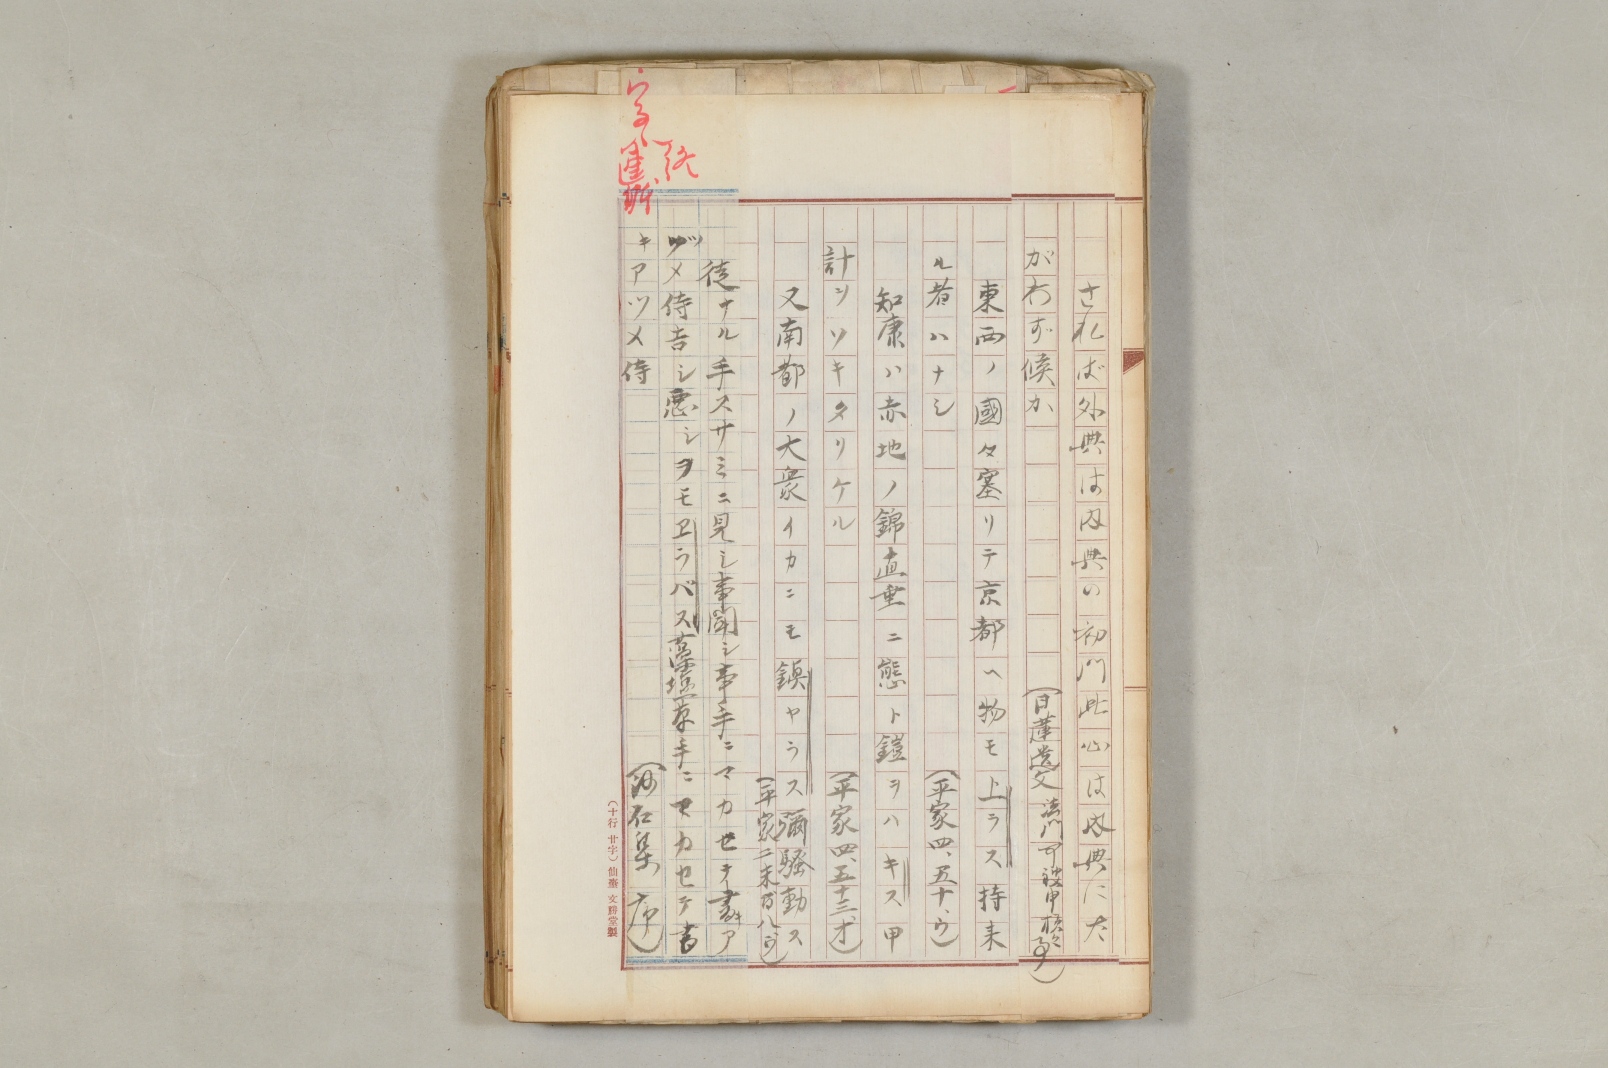 されば外典は内典の初門此心は内典にた
がわず候か
(日蓮遺文 法門可被申様之事)
東西ノ國々塞リテ京都ヘ物モ上ラス持来
ル者ハナシ
(平家四、五十、ウ)
知康ハ赤地ノ錦直垂ニ態ト鎧ヲハキス甲
計ソソキタリケル
(平家四、五十三、オ)
又南都ノ大衆イカニモ鎮ヤラス弥騒動ス
(平家二末廿八ウ)
徒ナル手スサミニ見シ事聞シ事手ニマカセテ書キア
ヅメ侍吉シ悪シヲモヱラバス藻塩草手ニマカセテ書
キアツメ侍
(沙石集 序)
(十行 廿字) 仙臺 文勝堂製